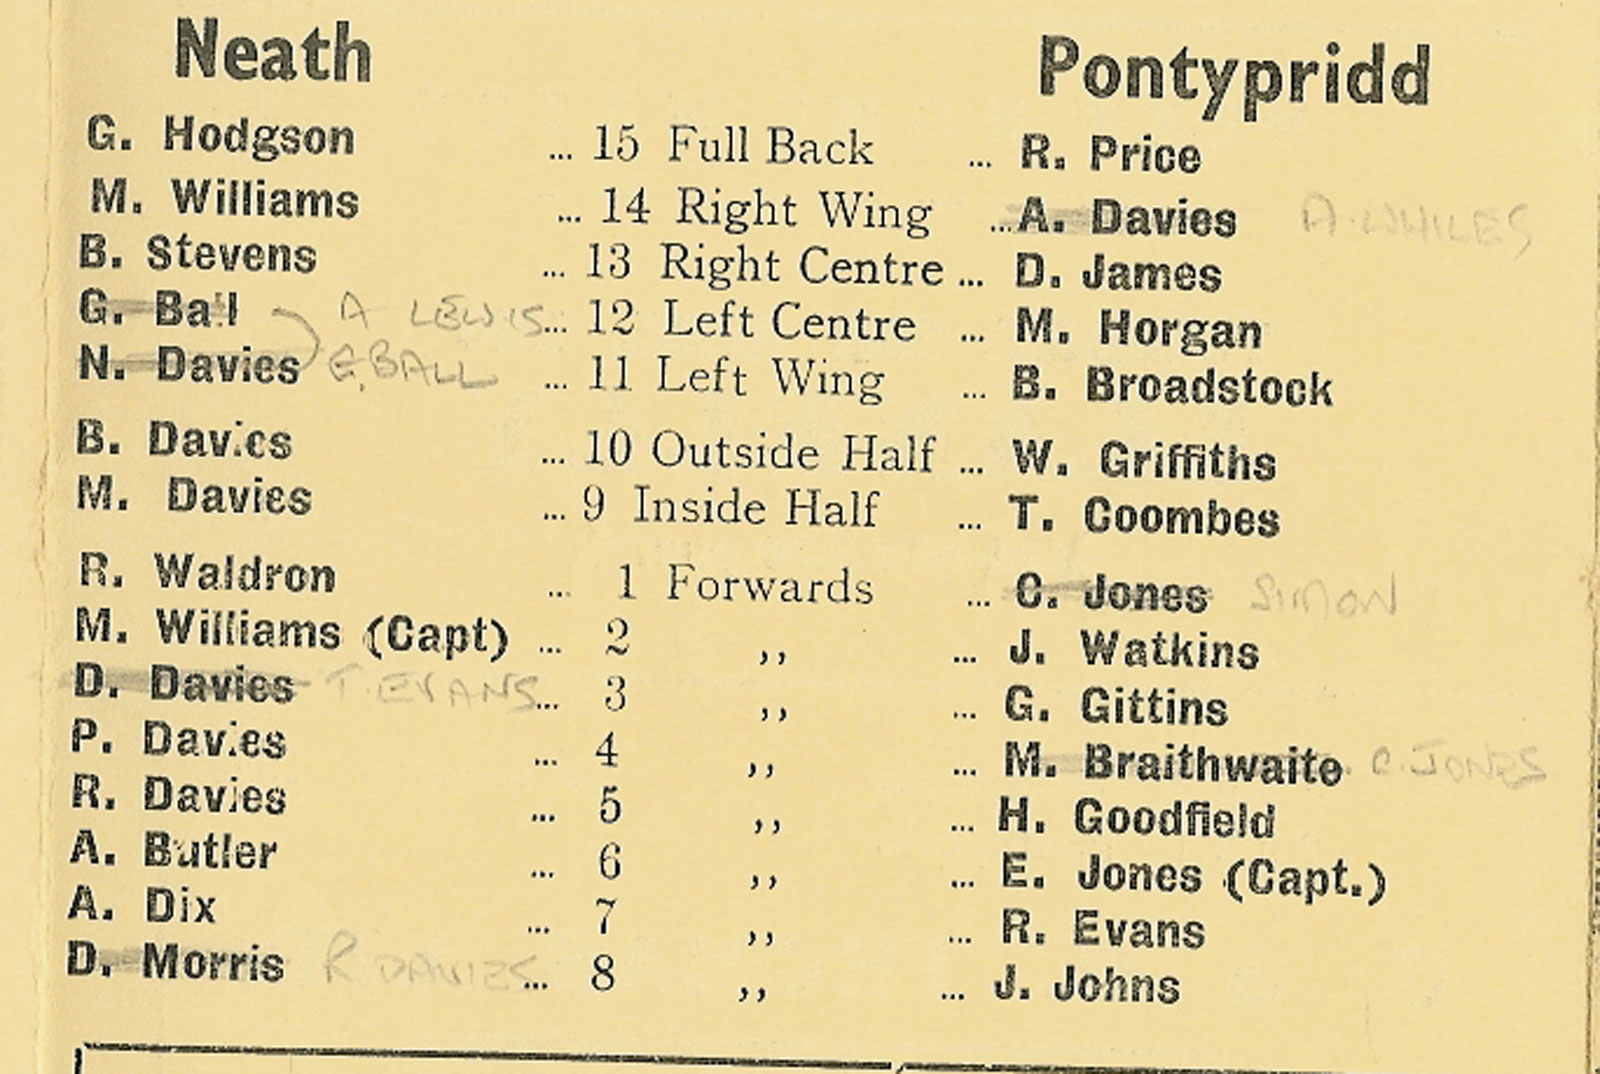 Neath Pontypridd
G. Hodgson ... 15 Full Back ... R. Price
M. Williams ... 14 Right Wing ... A. Davies A. WHILES
B. Stevens ... 13 Right Centre ... D. James
G. Ball A LEWIS ... 12 Left Centre ... M. Horgan
N. Davies G. BALL ... 11 Left Wing ... B. Broadstock
B. Davies ... 10 Outside Half ... W. Griffiths
M. Davies ... 9 Inside Half ... T. Coombes
R. Waldron ... 1 Forwards ... C. Jones SIMON
M. Williams (Capt) ... 2 ,, ... J. Watkins
D. Davies T. EVANS ... 3 ,, ... G. Gittins
P. Davies ... 4 ,, ... M. Braithwaite C. JONES
R. Davies ... 5 ,, ... H. Goodfield
A. Butler ... 6 ,, ... E. Jones (Capt.)
A. Dix ... 7 ,, ... R. Evans
D. Morris R DAVIES ... 8 ,, ... J. Johns